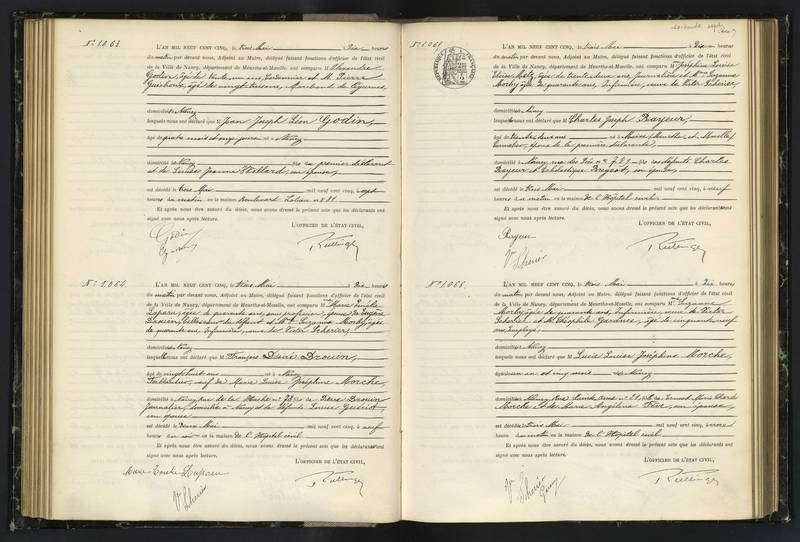 N° 1.063. L'AN MIL NEUF CENT CINQ, le trois Mai à Dix heures
du matin par devant nous, Adjoint au Maire, délégué faisant fonctions d'officier de l'état civil
de la Ville de Nancy, département de Meurthe-et-Moselle, ont comparu M Alexandre
Godin, âgé de trente un ans, et M. Pierre
âgé de vingt ans, Marchand de légumes,
domiciliés à Nancy
lesquels nous ont déclaré que M Jean Joseph Léon Godin,
âgé de quatre mois et onze jours né à Nancy
domicilié à Nancy fils du premier déclarant
et de Louise Jeanne son épouse
est décédé le trois Mai mil neuf cent cinq, à sept
heures du matin en la maison Boulevard Lobau n° 31.
Et après nous être assuré du décès, nous avons dressé le présent acte que les déclarants ont
signé avec nous après lecture.
L'OFFICIER DE L'ÉTAT CIVIL,
Godin
N° 1.064. L'AN MIL NEUF CENT CINQ, le trois Mai à Dix heures
du matin par devant nous, Adjoint au Maire, délégué faisant fonctions d'officier de l'état civil
de la Ville de Nancy, département de Meurthe-et-Moselle, ont comparu M Marie Emilie
âgée de quarante ans, sans profession,
Drouin, du défunt et Mme Suzanne Morby, âgée
de quarante ans, infirmière, veuve de Victor Scherier,
domiciliés à Nancy
lesquelles nous ont déclaré que M François Désiré Drouin,
âgé de vingt huit ans né à Nancy
Ferblantier, veuf de Marie Louise Joséphine Morche,
domicilié à Nancy, rue de la n° 78, fils de Pierre Drouin
Journalier, domicilié à Nancy et de défunte Louise
son épouse
est décédé le deux Mai mil neuf cent cinq, à neuf
heures du soir en la maison de l'Hôpital civil
Et après nous être assuré du décès, nous avons dressé le présent acte que les déclarants ont
signé avec nous après lecture.
L'OFFICIER DE L'ÉTAT CIVIL,
Marie Emilie
Vve Scherier
N° 1.065. L'AN MIL NEUF CENT CINQ, le trois Mai à Dix heures
du matin par devant nous, Adjoint au Maire, délégué faisant fonctions d'officier de l'état civil
de la Ville de Nancy, département de Meurthe-et-Moselle, ont comparu Mme Joséphine Louise
âgée de trente deux ans, Journalière et Mme Suzanne
Morby, âgée de quarante ans, infirmière, veuve de Victor Scherier,
domiciliés à Nancy
lesquels nous ont déclaré que M Charles Joseph Rayeur,
âgé de trente deux ans né à (Meurthe et Moselle)
époux de la première déclarante,
domicilié à Nancy, rue des n° fils des défunts Charles
Rayeur et son épouse
est décédé le trois Mai mil neuf cent cinq, à neuf
heures du matin en la maison de l'Hôpital civil
Et après nous être assuré du décès, nous avons dressé le présent acte que les déclarants ont
signé avec nous après lecture.
L'OFFICIER DE L'ÉTAT CIVIL,
Rayeur
Vve Scherier
N° 1.066. L'AN MIL NEUF CENT CINQ, le trois Mai à Dix heures
du matin par devant nous, Adjoint au Maire, délégué faisant fonctions d'officier de l'état civil
de la Ville de Nancy, département de Meurthe-et-Moselle, ont comparu Mme Suzanne
Morby, âgée de quarante ans, infirmière, veuve de Victor
Scherier et M. Théophile âgé de cinquante neuf
ans, Employé,
domiciliés à Nancy
lesquels nous ont déclaré que M Lucie Louise Joséphine Morche,
âgée d'un an et cinq mois née à Nancy
domiciliée à Nancy, rue fille de Ernest Marie Charles
Morche et de Maria Angelina son épouse
est décédée le trois Mai mil neuf cent cinq, à
heures du matin en la maison de l'Hôpital civil
Et après nous être assuré du décès, nous avons dressé le présent acte que les déclarants ont
signé avec nous après lecture.
L'OFFICIER DE L'ÉTAT CIVIL,
Vve Scherier